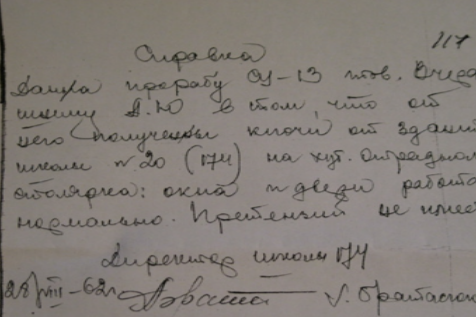 117
Справка
Дана прорабу ОЗ-13 тов. Очере
шкину В.Ю в том, что от
него получены ключи от здания
школы № 20 (174) на хут. Отрадном
столярка: окна и двери работа
нормально. Претензий не имеет
Директор школы 174
28/VIII-62г.